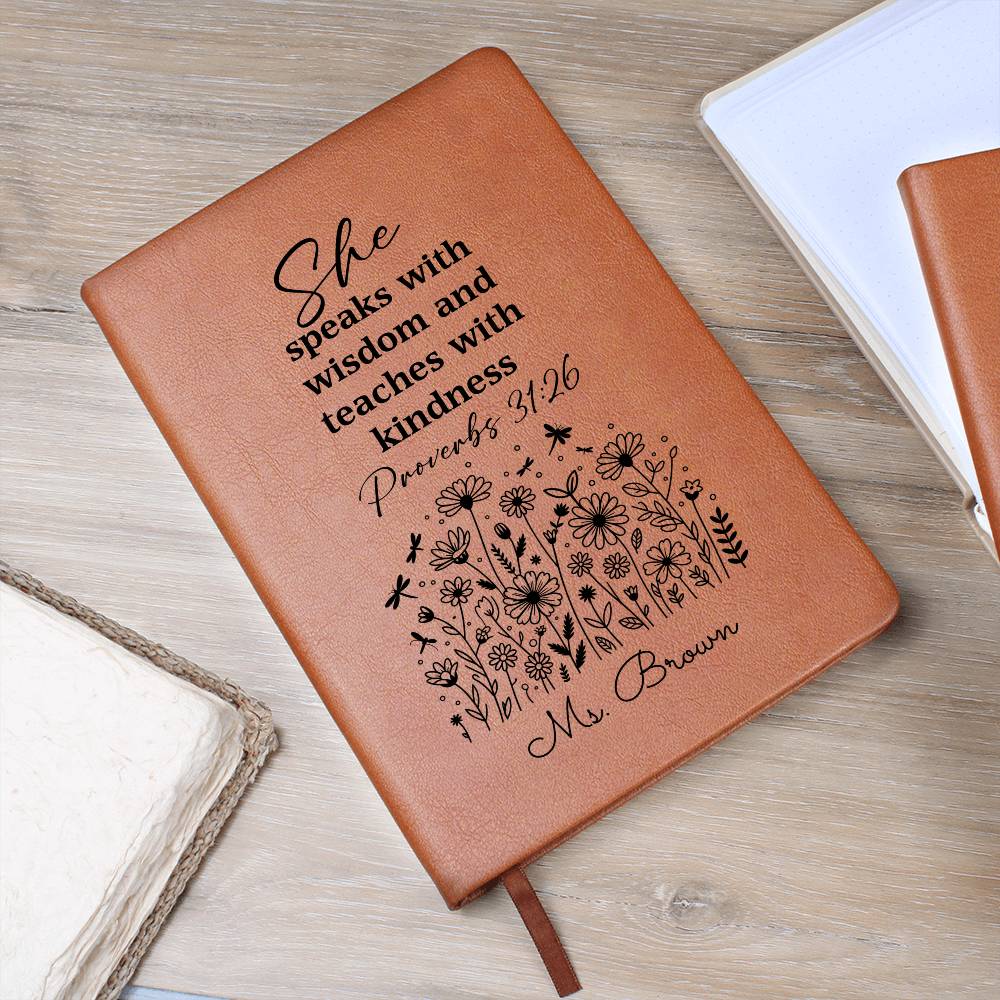 She
speaks with
wisdom and
teaches with
kindness
Proverbs 31:26
Ms. Brown